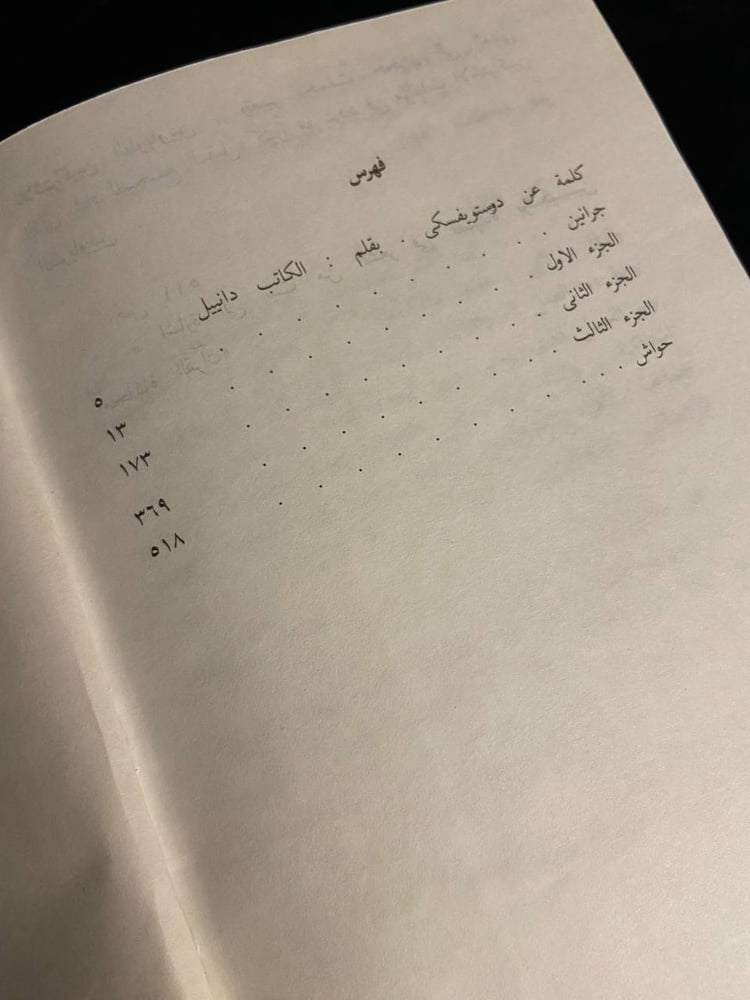 فهرس
كلمة عن دوستويفسكى . بقلم : الكاتب دانييل
جرانين . . . . . . . ٥
الجزء الاول . . . . . . . ١٣
الجزء الثانى . . . . . . . ١٧٣
الجزء الثالث . . . . . . . ٣٦٩
حواش . . . . . . . . . ٥١٨